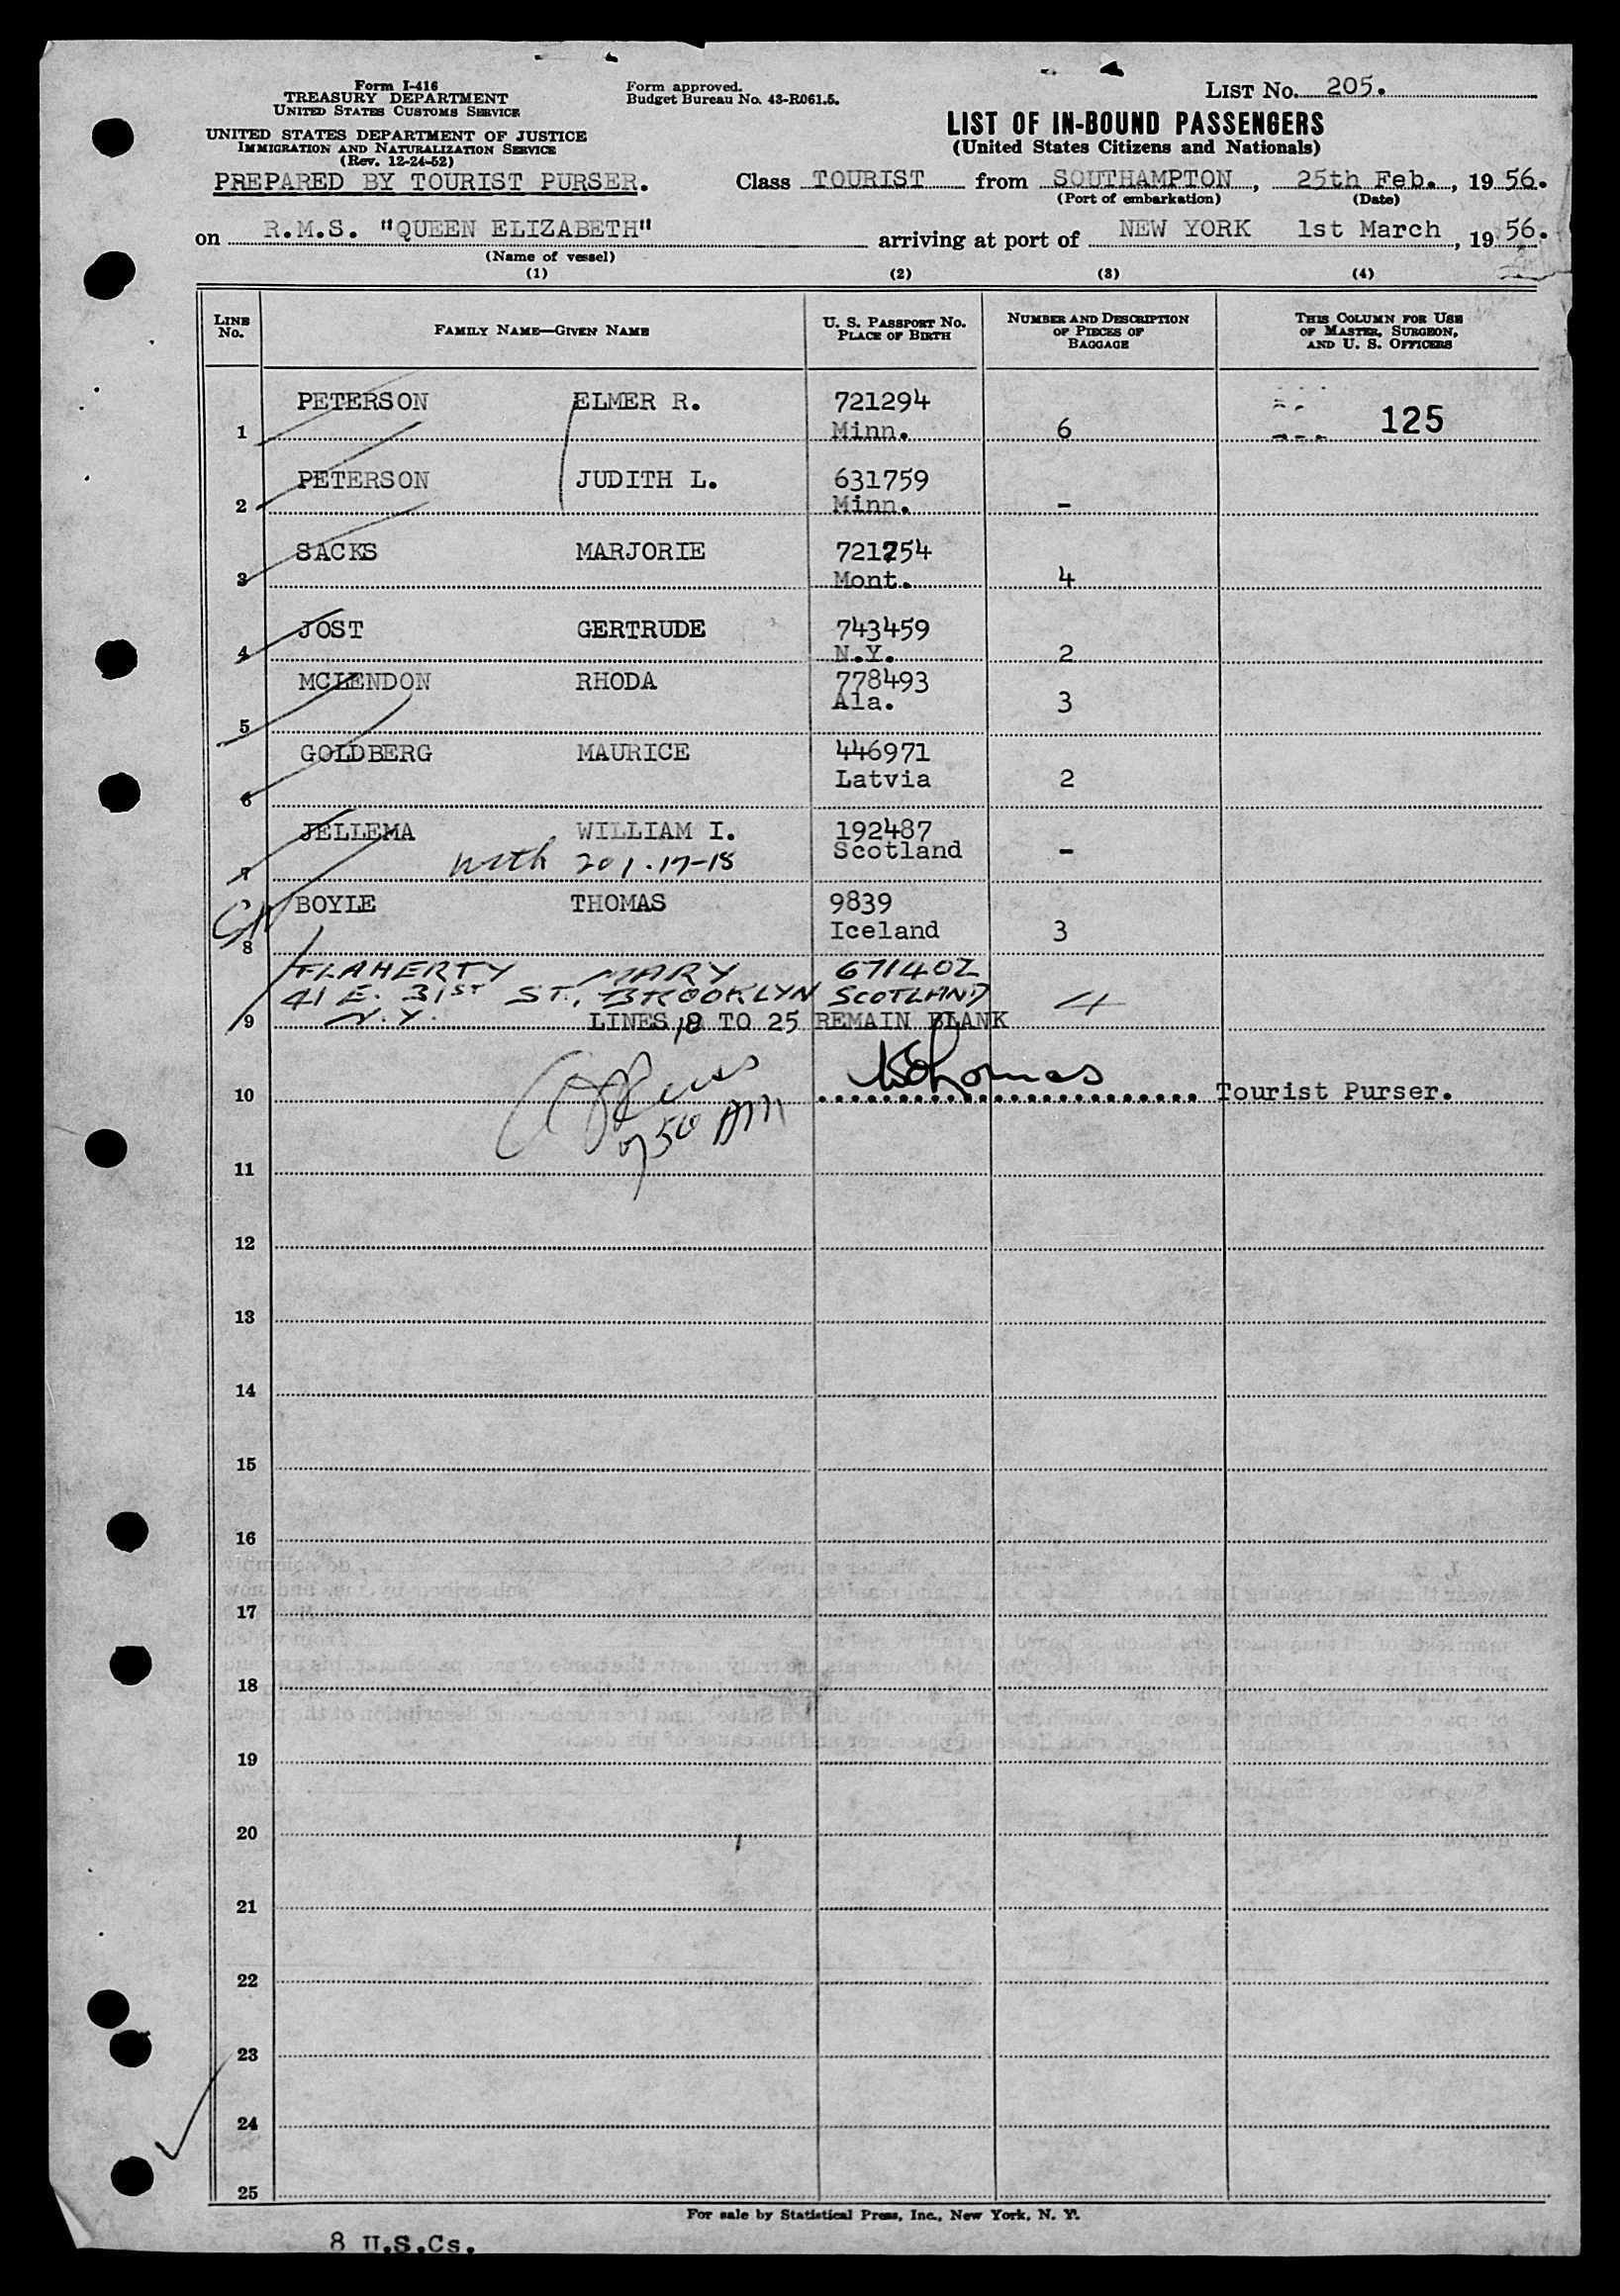 Form I-416
TREASURY DEPARTMENT
UNITED STATES CUSTOMS SERVICE
UNITED STATES DEPARTMENT OF JUSTICE
IMMIGRATION AND NATURALIZATION SERVICE
(Rev. 12-24-52)
PREPARED BY TOURIST PURSER.
Form approved.
Budget Bureau No. 43-R061.5.
LIST No. 205.
LIST OF IN-BOUND PASSENGERS
(United States Citizens and Nationals)
Class TOURIST from SOUTHAMPTON, 25th Feb., 1956.
(Port of embarkation) (Date)
on R.M.S. "QUEEN ELIZABETH" arriving at port of NEW YORK 1st March, 1956.
(Name of vessel)
(1) (2) (3) (4)
LINE No. FAMILY NAME—GIVEN NAME U. S. PASSPORT NO. PLACE OF BIRTH NUMBER AND DESCRIPTION OF PIECES OF BAGGAGE THIS COLUMN FOR USE OF MASTER, SURGEON, AND U. S. OFFICERS
PETERSON ELMER R. 721294
1 Minn. 6 125
PETERSON JUDITH L. 631759
2 Minn. -
SACKS MARJORIE 721254
3 Mont. 4
JOST GERTRUDE 743459
4 N.Y. 2
MCLENDON RHODA 778493
5 Ala. 3
GOLDBERG MAURICE 446971
6 Latvia 2
JELLEMA WILLIAM I. 192487
7 with 201.17-18 Scotland -
BOYLE THOMAS 9839
8 Iceland 3
FLAHERTY MARY 671402
41 E. 31ST ST., BROOKLYN SCOTLAND 4
9 N.Y. LINES 10 TO 25 REMAIN BLANK
10 Tourist Purser.
750 AM
11
12
13
14
15
16
17
18
19
20
21
22
23
24
25
For sale by Statistical Press, Inc., New York, N. Y.
8 U.S.Cs.